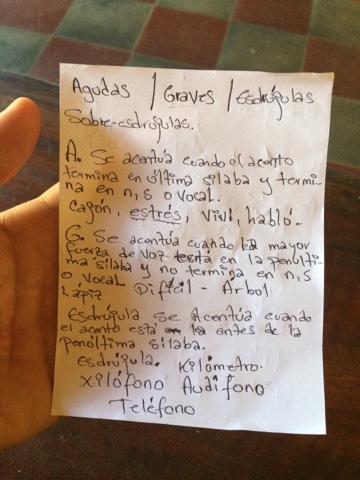 Agudas / Graves / Esdrújulas
Sobre-esdrújulas.
A. Se acentúa cuando el acento
termina en última silaba y termi-
na en n, s o vocal.
cajón, estrés, viví, habló.
G. Se acentúa cuando la mayor
fuerza de voz está en la penúlti-
ma sílaba y no termina en n, s
o vocal
Lápiz Difícil - Árbol
Esdrújula se acentúa cuando
el acento está antes de la
penúltima sílaba.
esdrújula. Kilómetro.
xilófono Audífono
Teléfono